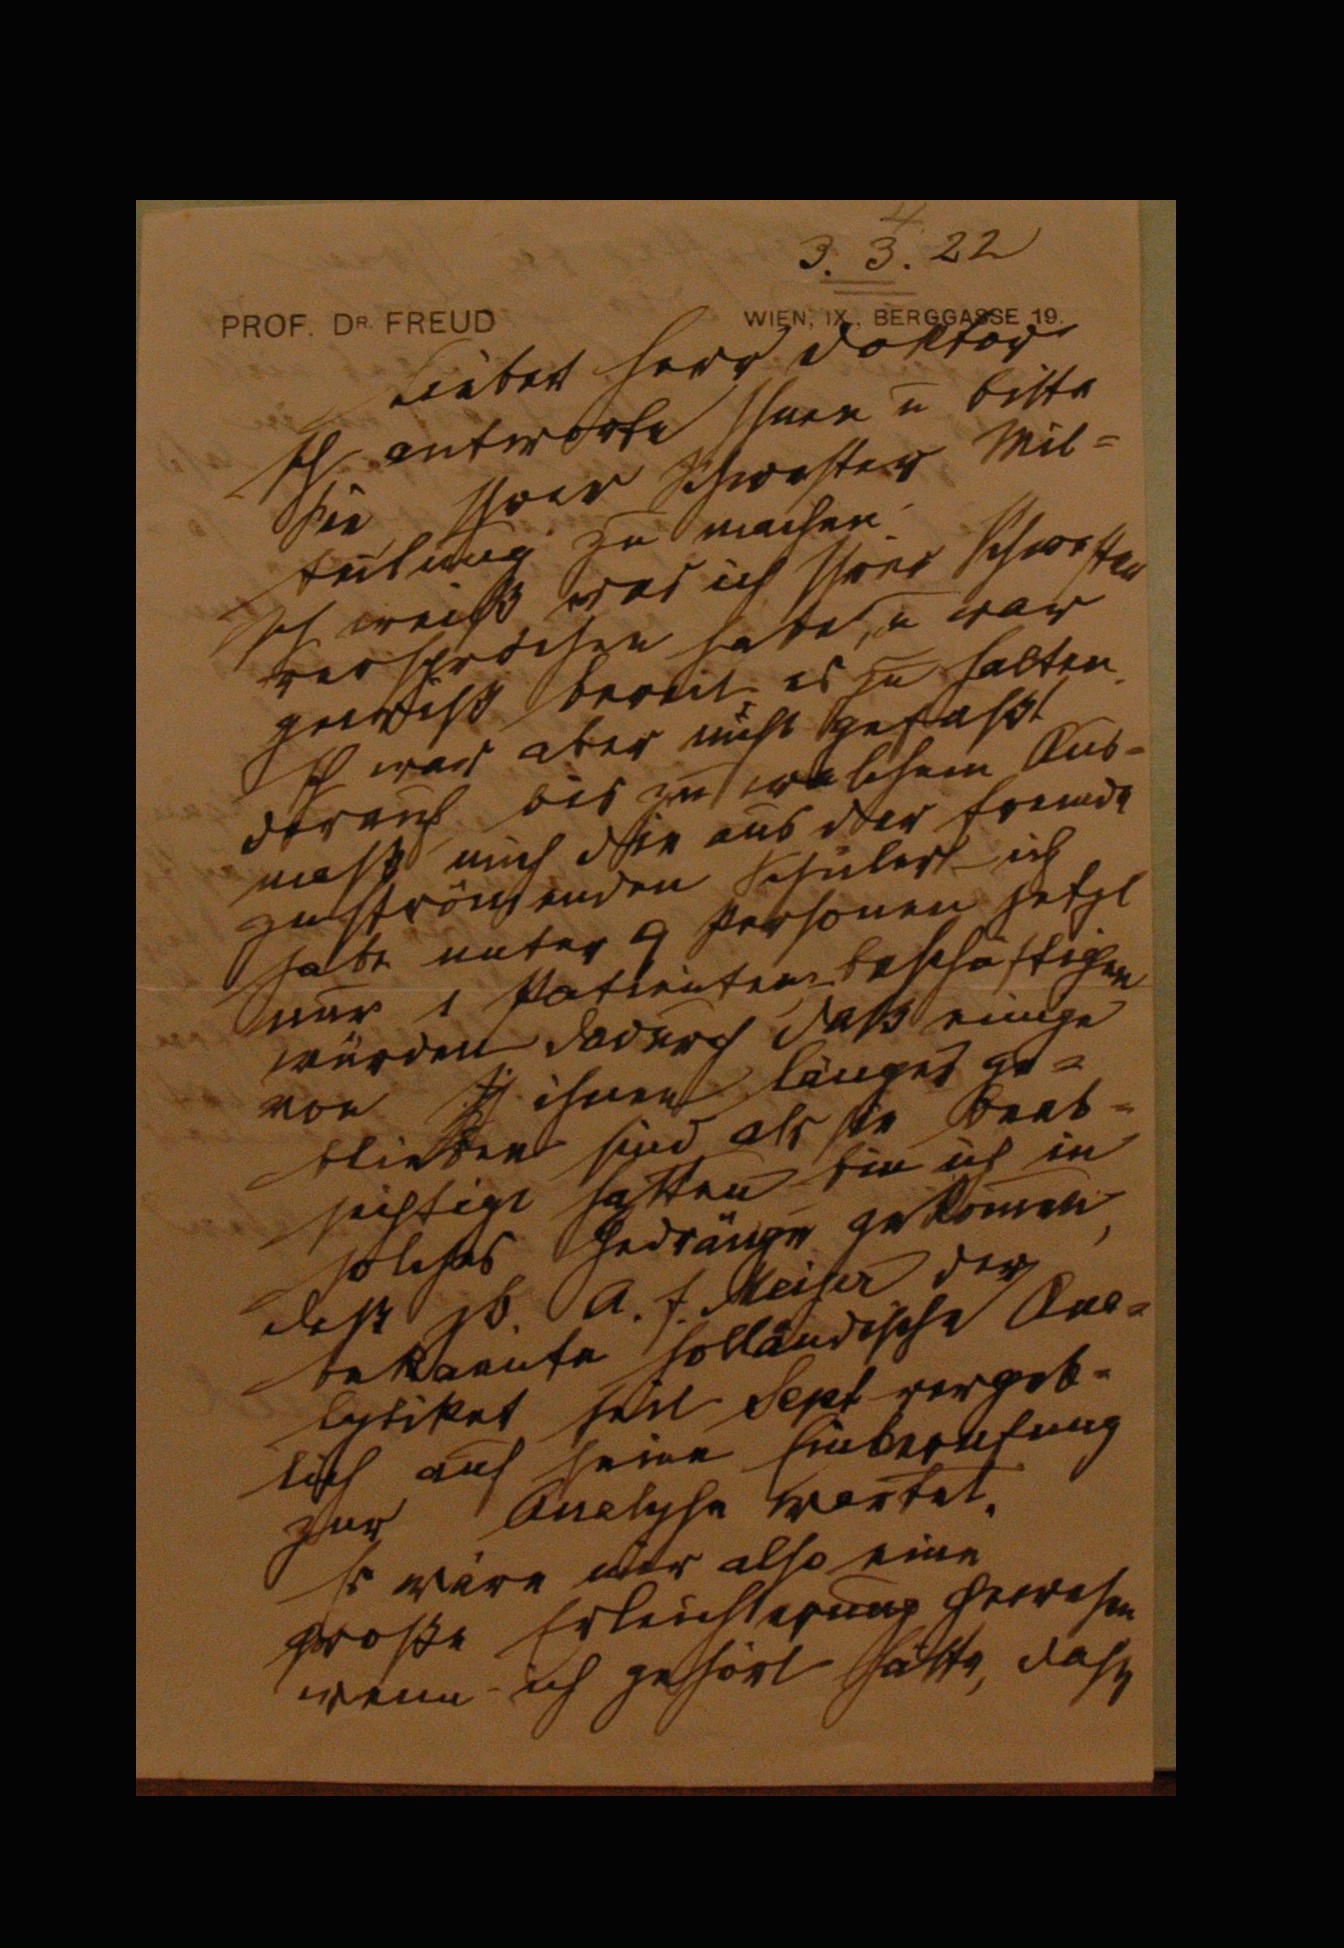 4
3. 3. 22
PROF. DR. FREUD WIEN, IX., BERGGASSE 19.
Lieber Herr Doktor
Ich antworte Ihnen u bitte
Sie Ihrer Schwester Mit=
teilung zu machen.
Ich weiß was ich Ihrer Schwester
versprochen habe, u war
gewiß bereit es zu halten.
Ich war aber nicht gefaßt
darauf bis zu welchem Aus=
maß mich die aus der Fremde
zuströmenden Schüler – ich
habe unter 9 Personen jetzt
nur 1 Patienten – beschäftigen
würden dadurch daß einige
von ihnen länger ge=
blieben sind als sie beab=
sichtigt hatten bin ich in
solches Gedränge gekommen,
daß zb. A. F. Meijer der
bekannte holländische Ana=
lytiker seit Sept vergeb=
lich auf seine Einberufung
zur Analyse wartet.
Es wäre mir also eine
große Erleichterung gewesen
wenn ich gehört hätte, daß